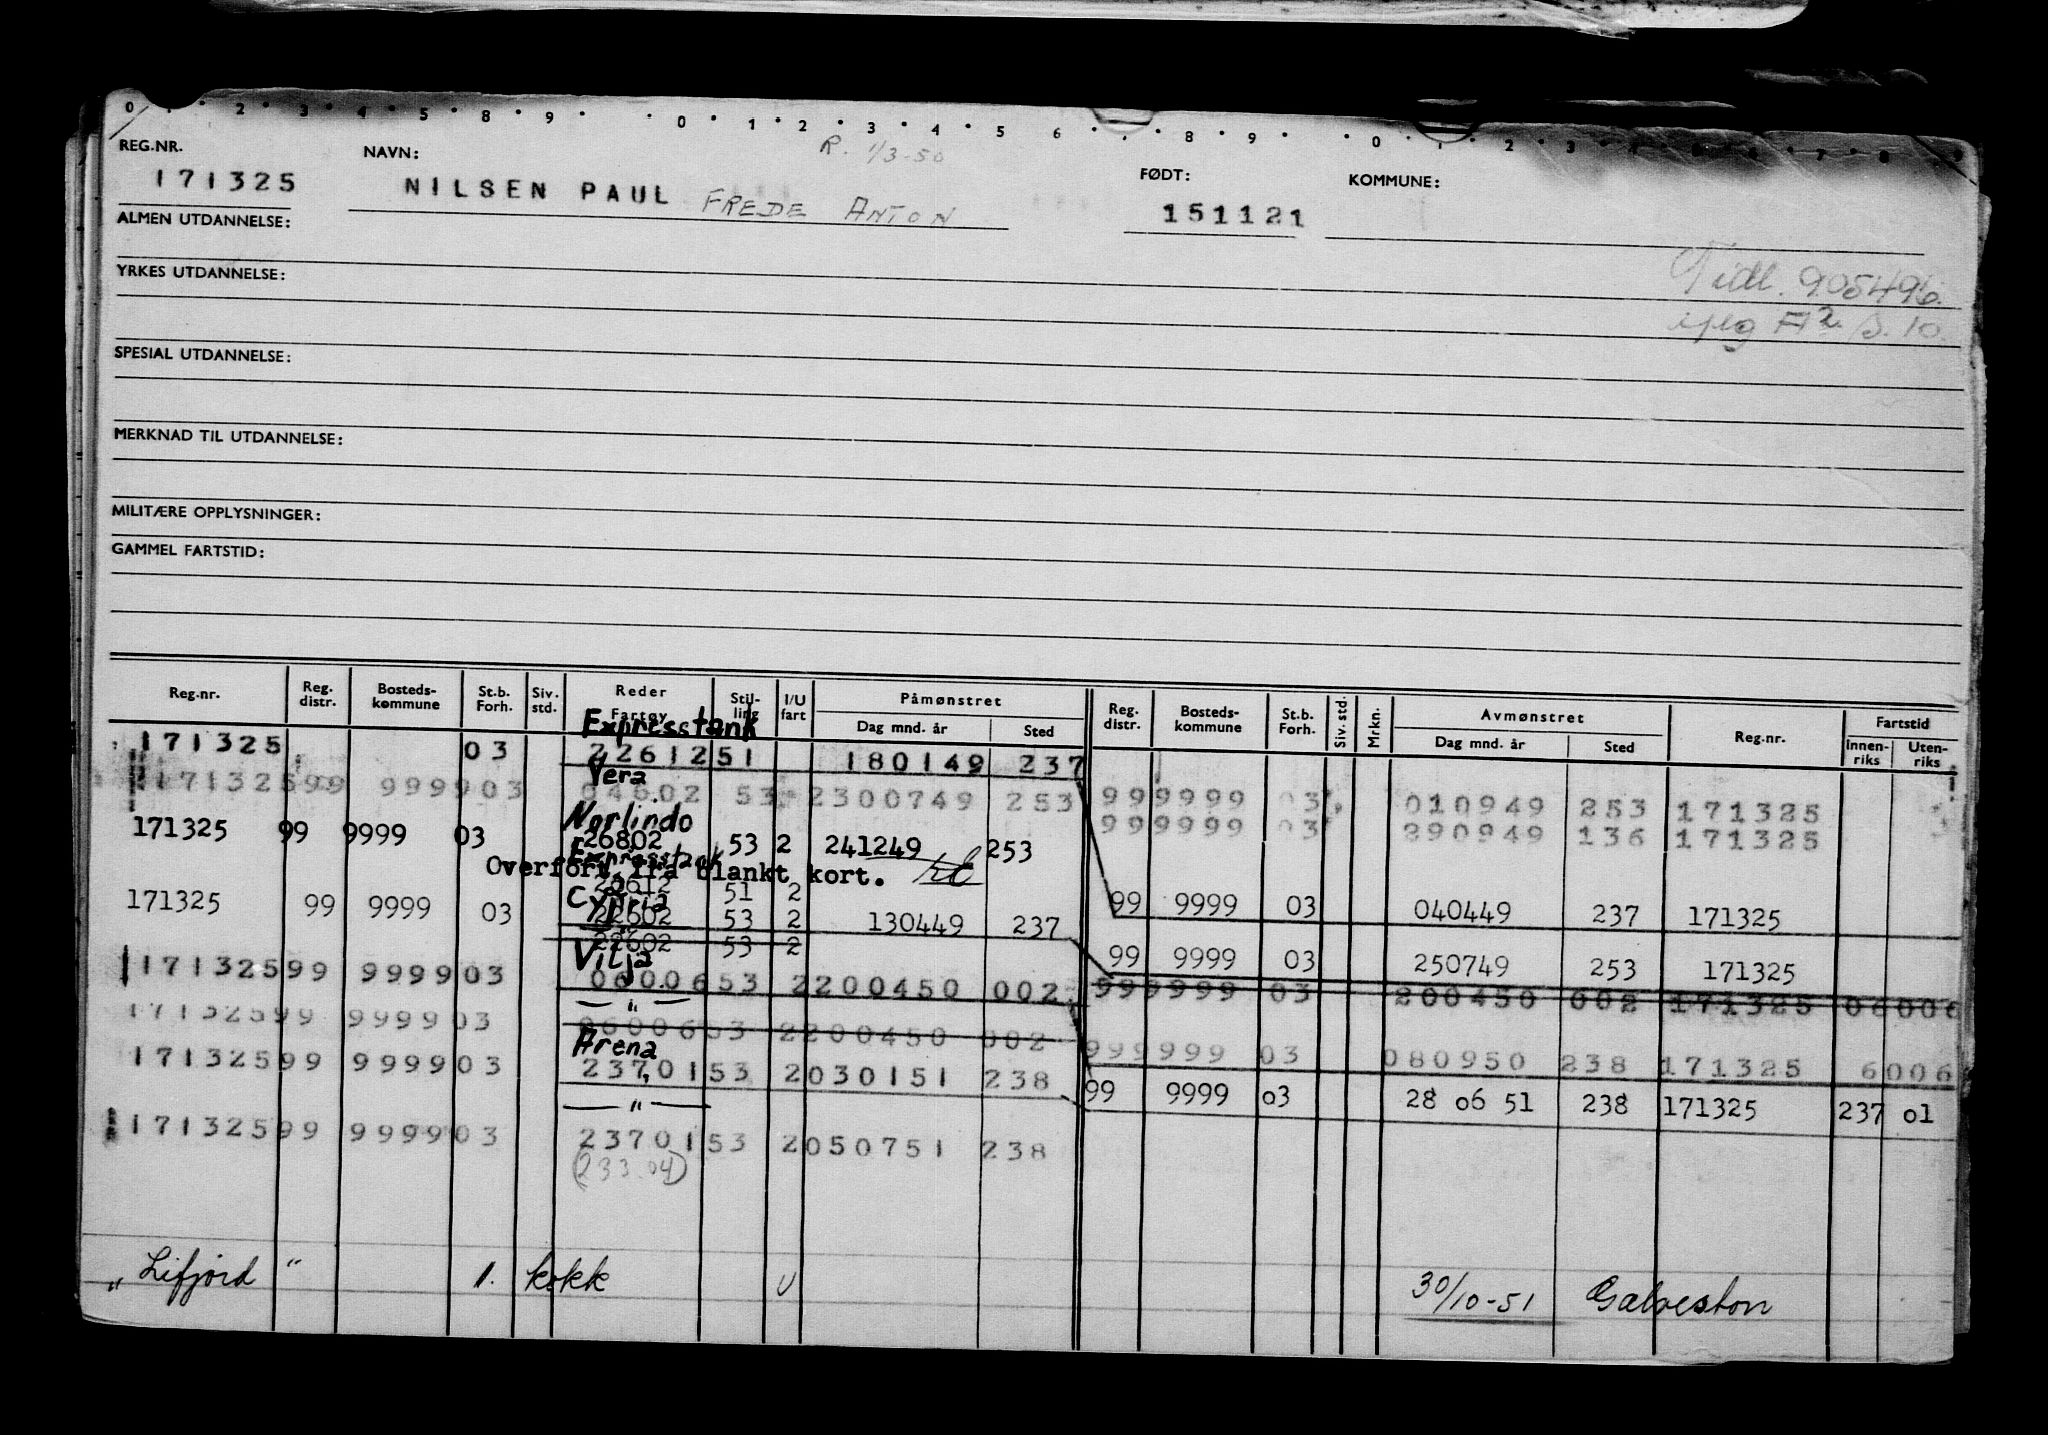 0 2 3 4 5 8 9 0 1 2 3 4 5 6 8 9 0 1 2 3 4 5 6 7 8 9
R. 1/3-50
REG.NR. NAVN: FØDT: KOMMUNE:
171325 NILSEN PAUL FREDE ANTON 151121
ALMEN UTDANNELSE:
YRKES UTDANNELSE:
Tidl. 905496.
iflg A2 s. 10.
SPESIAL UTDANNELSE:
MERKNAD TIL UTDANNELSE:
MILITÆRE OPPLYSNINGER:
GAMMEL FARTSTID:
Reg.nr. Reg. distr. Bosteds- kommune St.b. Forh. Siv. std. Reder Fartøy Stil- ling I/U fart Påmønstret Dag mnd. år Sted Reg. distr. Bosteds- kommune St.b. Forh. Siv. std. Mrkn. Avmønstret Dag mnd. år Sted Reg.nr. Fartstid Innen- riks Uten- riks
Expresstank
171325 03 22612 51 180149 237
Vera
171325 99 9999 03 04602 53 2 300749 253 99 9999 03 010949 253 171325
Norlindo
99 9999 03 290949 136 171325
171325 99 9999 03 26802 53 2 241249 253
Expresstank
Overført fra blankt kort.
22612 51 2
Cypria
171325 99 9999 03 22602 53 2 130449 237 99 9999 03 040449 237 171325
—"—
22602 53 2
Vilja
99 9999 03 250749 253 171325
171325 99 9999 03 06006 53 2 200450 002 99 9999 03 200450 002 171325 06006
—"—
171325 99 9999 03 06006 53 2 200450 002 99 9999 03 080950 238 171325 6006
Arena
171325 99 9999 03 23701 53 2 030151 238 99 9999 03 28 06 51 238 171325 237 01
—"—
171325 99 9999 03 23701 53 2 050751 238
(233.04)
"Lifjord" 1. kokk U 30/10-51 Galveston